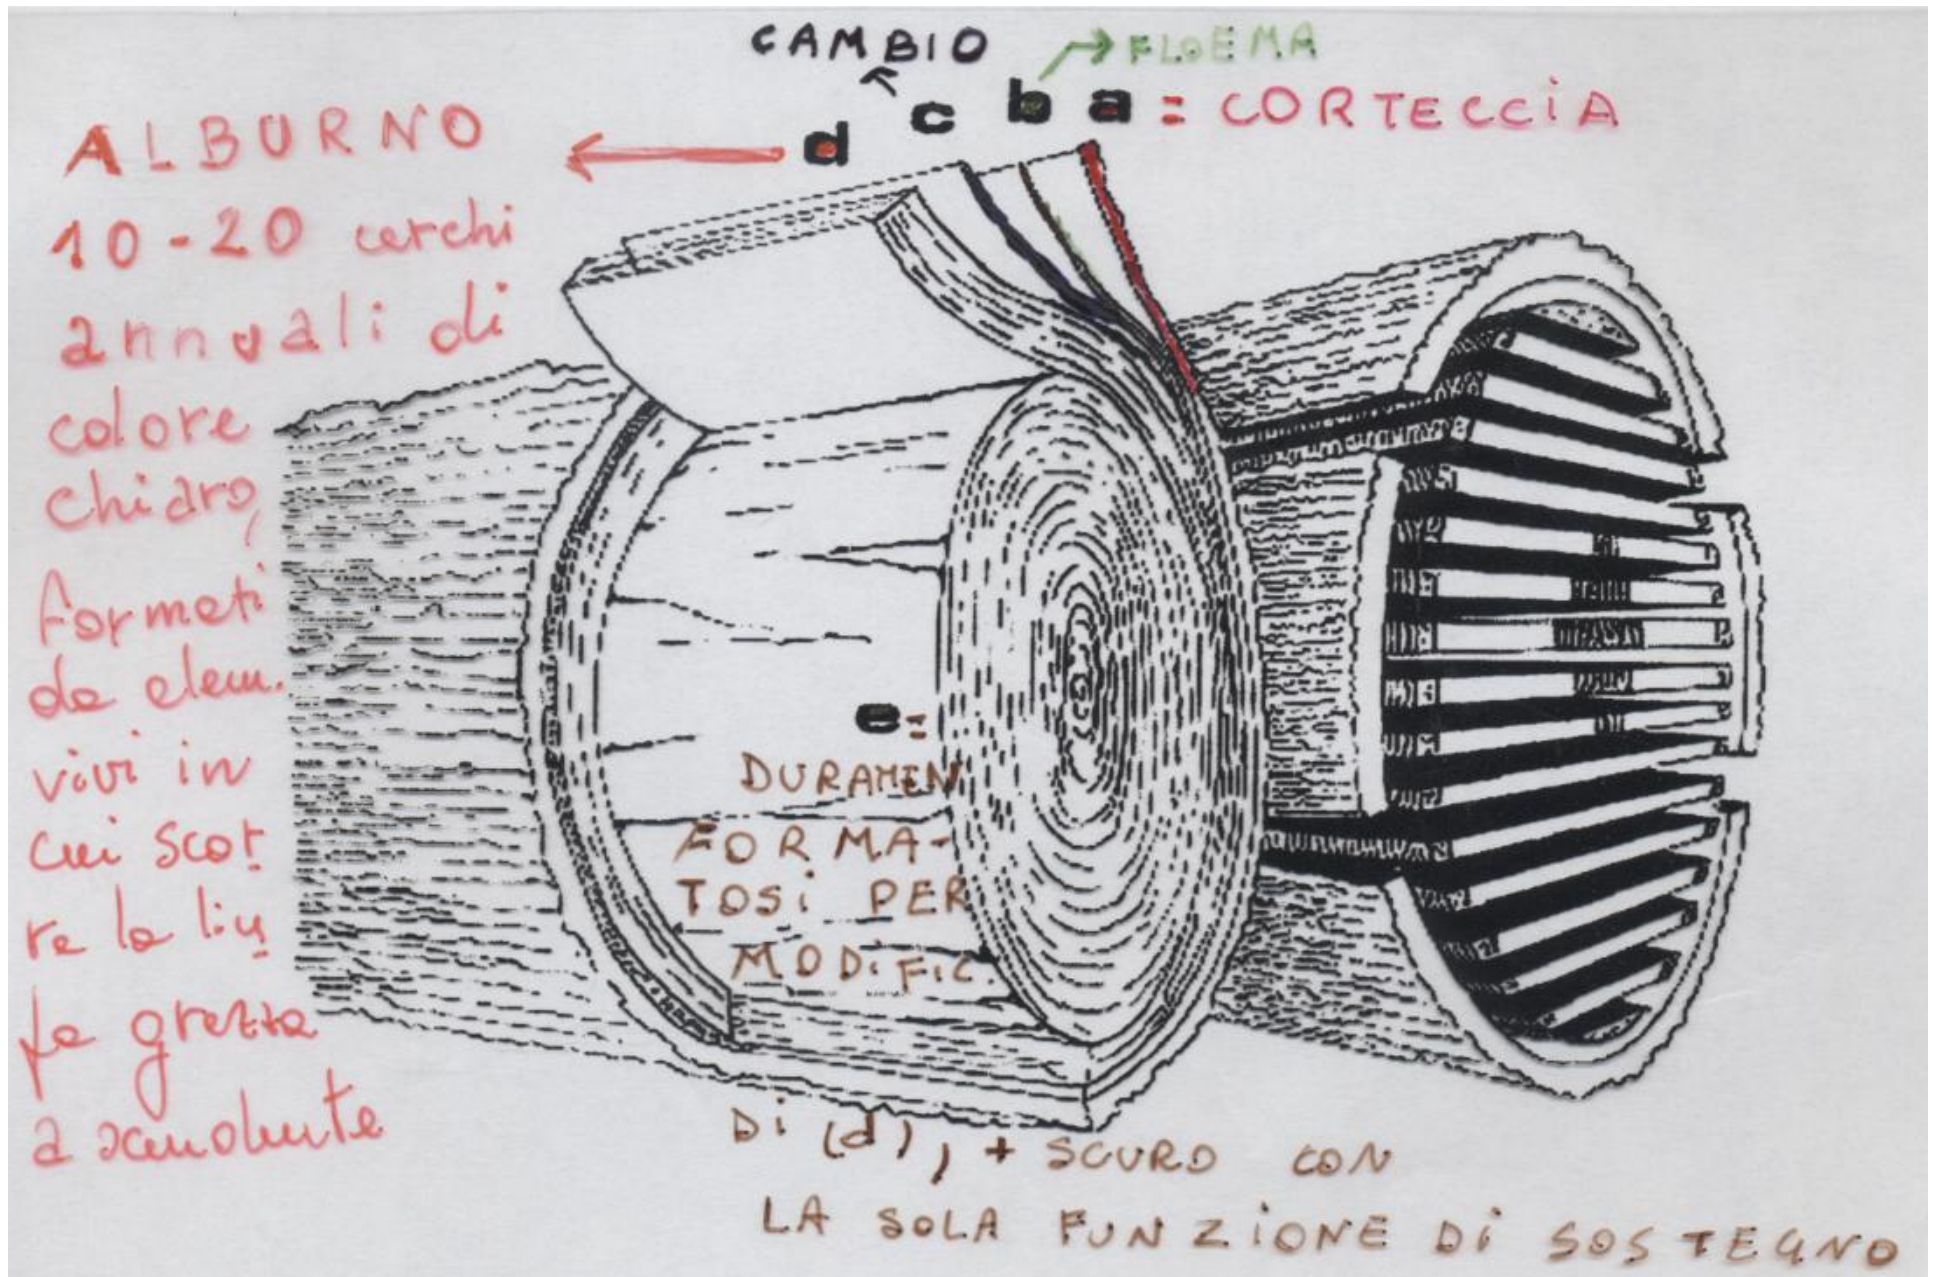 CAMBIO
FLOEMA
d c b a = CORTECCIA
ALBURNO
10-20 cerchi
annuali di
colore
chiaro,
formati
da elem.
vivi in
cui scor
re la lin
fa grezza
ascendente
e =
DURAMEN
FORMA-
TOSI PER
MODIFIC
DI (d), + SCURO CON
LA SOLA FUNZIONE DI SOSTEGNO